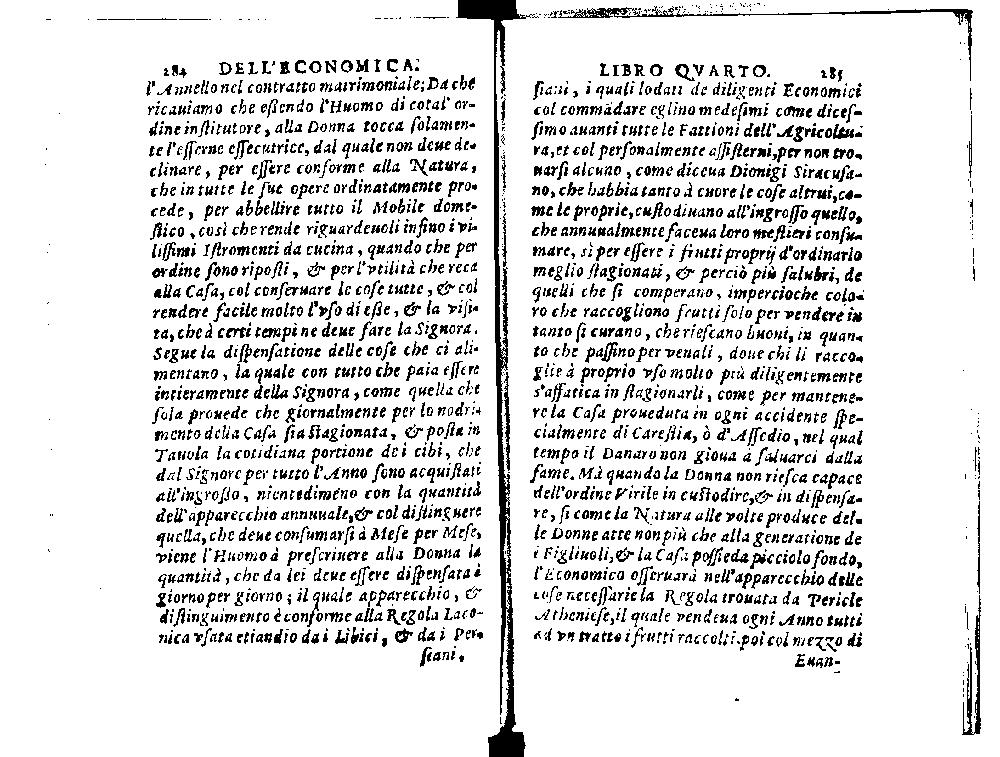 284 DELL'ECONOMICA.
l'Annello nel contratto matrimoniale; Da che
ricauiamo che eſſendo l'Huomo di cotal' or-
dine inſtitutore, alla Donna tocca ſolamen-
te l'eſſerne eſſecutrice, dal quale non deue de-
clinare, per eſſere conforme alla Natura,
che in tutte le ſue opere ordinatamente pro-
cede, per abbellire tutto il Mobile dome-
ſtico, così che rende riguardeuoli inſino i vi-
liſſimi Iſtromenti da cucina, quando che per
ordine ſono ripoſti, & per l'vtilità che reca
alla Caſa, col conſeruare le coſe tutte, & col
rendere facile molto l'vſo di eſſe, & la viſi-
ta, che à certi tempi ne deue fare la Signora.
Segue la diſpenſatione delle coſe che ci ali-
mentano, la quale con tutto che paia eſſere
intieramente della Signora, come quella che
ſola prouede che giornalmente per lo nodri-
mento della Caſa ſia ſtagionata, & poſta in
Tauola la cotidiana portione dei cibi, che
dal Signore per tutto l'Anno ſono acquiſtati
all'ingroſſo, nientedimeno con la quantità
dell'apparecchio annuale, & col diſtinguere
quella, che deue conſumarſi à Meſe per Meſe,
viene l'Huomo à preſcriuere alla Donna la
quantità, che da lei deue eſſere diſpenſata à
giorno per giorno; il quale apparecchio, &
diſtinguimento è conforme alla Regola Laco-
nica vſata etiandio da i Libici, & da i Per-
ſiani,
LIBRO QVARTO. 285
ſiani, i quali lodati de diligenti Economici
col commãdare eglino medeſimi come diceſ-
ſimo auanti tutte le Fattioni dell'Agricoltu-
ra, et col perſonalmente aſſiſterui, per non tro-
uarſi alcuno, come diceua Dionigi Siracuſa-
no, che habbia tanto à cuore le coſe altrui, co-
me le proprie, cuſtodiuano all'ingroſſo quello,
che annualmente faceua loro meſtieri conſu-
mare, sì per eſſere i frutti proprij d'ordinario
meglio ſtagionati, & perciò più ſalubri, de
quelli che ſi comperano, impercioche colo-
ro che raccogliono frutti ſolo per vendere in
tanto ſi curano, che rieſcano buoni, in quan-
to che paſſino per venali, doue chi li racco-
glie à proprio vſo molto più diligentemente
s'affatica in ſtagionarli, come per mantene-
re la Caſa proueduta in ogni accidente ſpe-
cialmente di Careſtia, ò d'Aſſedio, nel qual
tempo il Danaro non gioua à ſaluarci dalla
fame. Mà quando la Donna non rieſca capace
dell'ordine Virile in cuſtodire, & in diſpenſa-
re, ſi come la Natura alle volte produce del-
le Donne atte non più che alla generatione de
i Figliuoli, & la Caſa poſſieda picciolo fondo,
l'Economico oſſeruarà nell'apparecchio delle
coſe neceſſarie la Regola trouata da Pericle
Athenieſe, il quale vendeua ogni Anno tutti
ad vn tratto i frutti raccolti, poi col mezzo di
Euan-